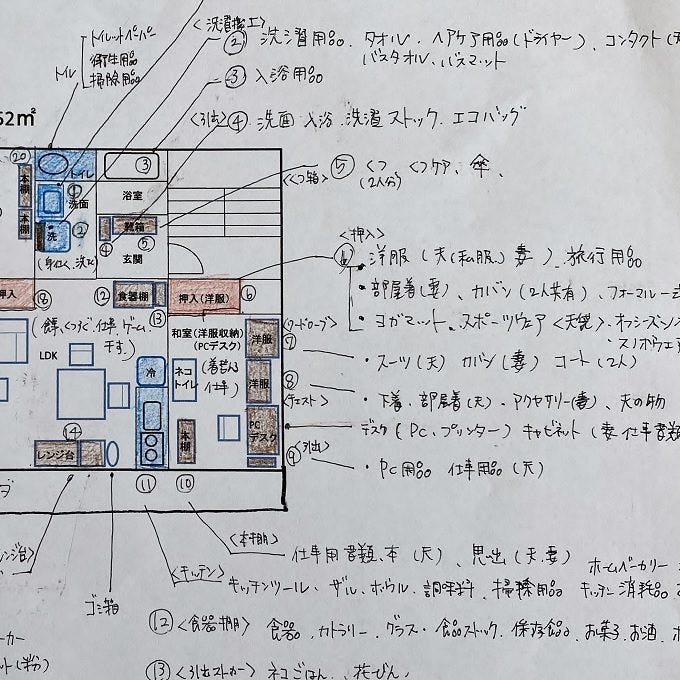 トイレットペーパー
衛生用品
掃除用品
トイレ
<洗濯機上>
② 洗濯用品、タオル、ヘアケア用品(ドライヤー)、コンタクト
バスタオル、バスマット
③ 入浴用品
<引出> ④ 洗面 入浴 洗濯 ストック、エコバッグ
52㎡
<くつ箱> ⑤ くつ くつケア、傘、
(2人分)
⑳
本棚
本棚
トイレ
①
洗面
洗 ②
(身仕く、洗たく)
③
浴室
④ 靴箱
⑤
玄関
<押入>
⑥ ・洋服(夫(私服)妻)、旅行用品
・部屋着(妻)、カバン(2人共有)、フォーマル一式
・ヨガマット、スポーツウェア<夫婦>、オフシーズン
押入
⑱
⑫ 食器棚
⑬
押入(洋服) ⑥
LDK
和室(洋服収納)
(PCデスク)
冷
ネコトイレ
洋服
洋服
PCデスク
本棚
⑭
レンジ台
<ワードローブ>
⑦ ・スーツ(夫) カバン(妻) コート(2人)
⑧ ・下着、部屋着(夫)・アクセサリー(妻)、夫の物
<チェスト>
デスク(PC、プリンター) キャビネット(妻 仕事書類
⑨ <引出> ・PC用品 仕事用品(夫)
⑪ ⑩
<本棚> 仕事用書類、本(夫)、思出(夫、妻)
レンジ台>
ゴミ箱
<キッチン> キッチンツール、ザル、ボウル、調味料、掃除用品 キッチン消耗品
ホームベーカリー
⑫ <食器棚> 食器、カトラリー、グラス・食品ストック、保存食品、お菓子、お酒、
⑬ <引出ストッカー> ネコごはん、花びん、